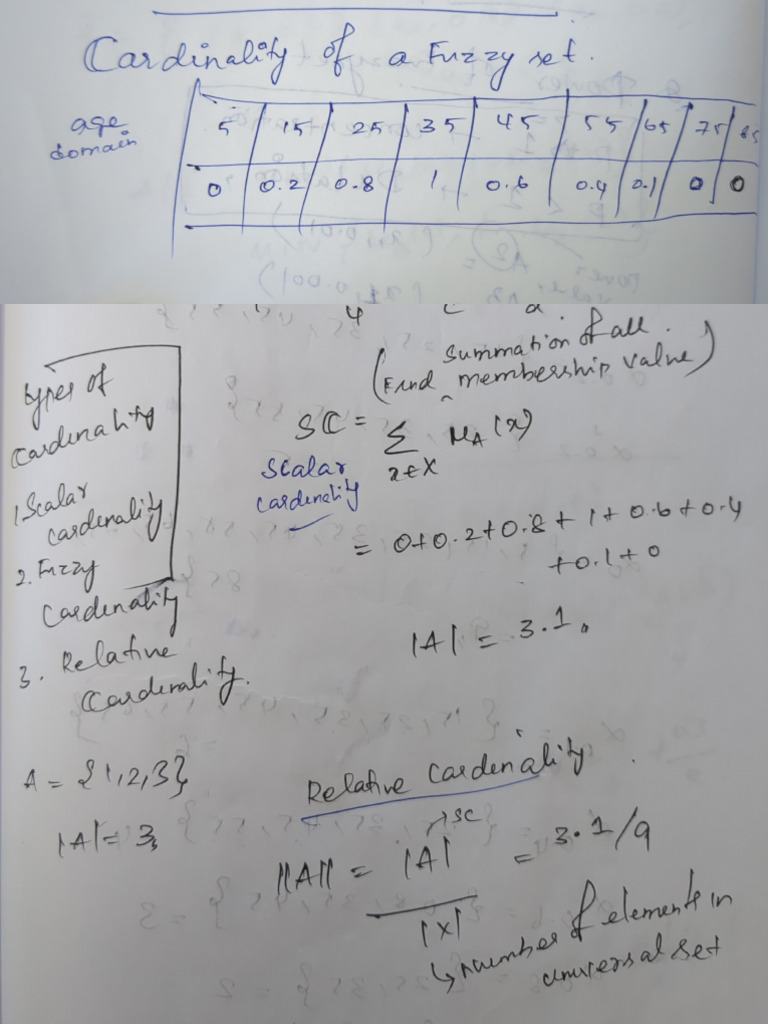 Cardinality of a Fuzzy set.
age domain
5 15 25 35 45 55 65 75 85
0 0.2 0.8 1 0.6 0.4 0.1 0 0
Types of
Cardenality
1. Scalar
cardenality
2. Fuzzy
Cardenality
3. Relative
Cardenality.
Summation of all
(Find membership value)
SC = Σ μ_A(x)
x∈X
Scalar
cardenality
= 0+0.2+0.8+1+0.6+0.4
+0.1+0
|A| = 3.1.
A = {1,2,3}
|A| = 3,
Relative Cardenality.
SC
||A|| = |A| = 3.1/9
|X|
↳ number of elements in
universal set